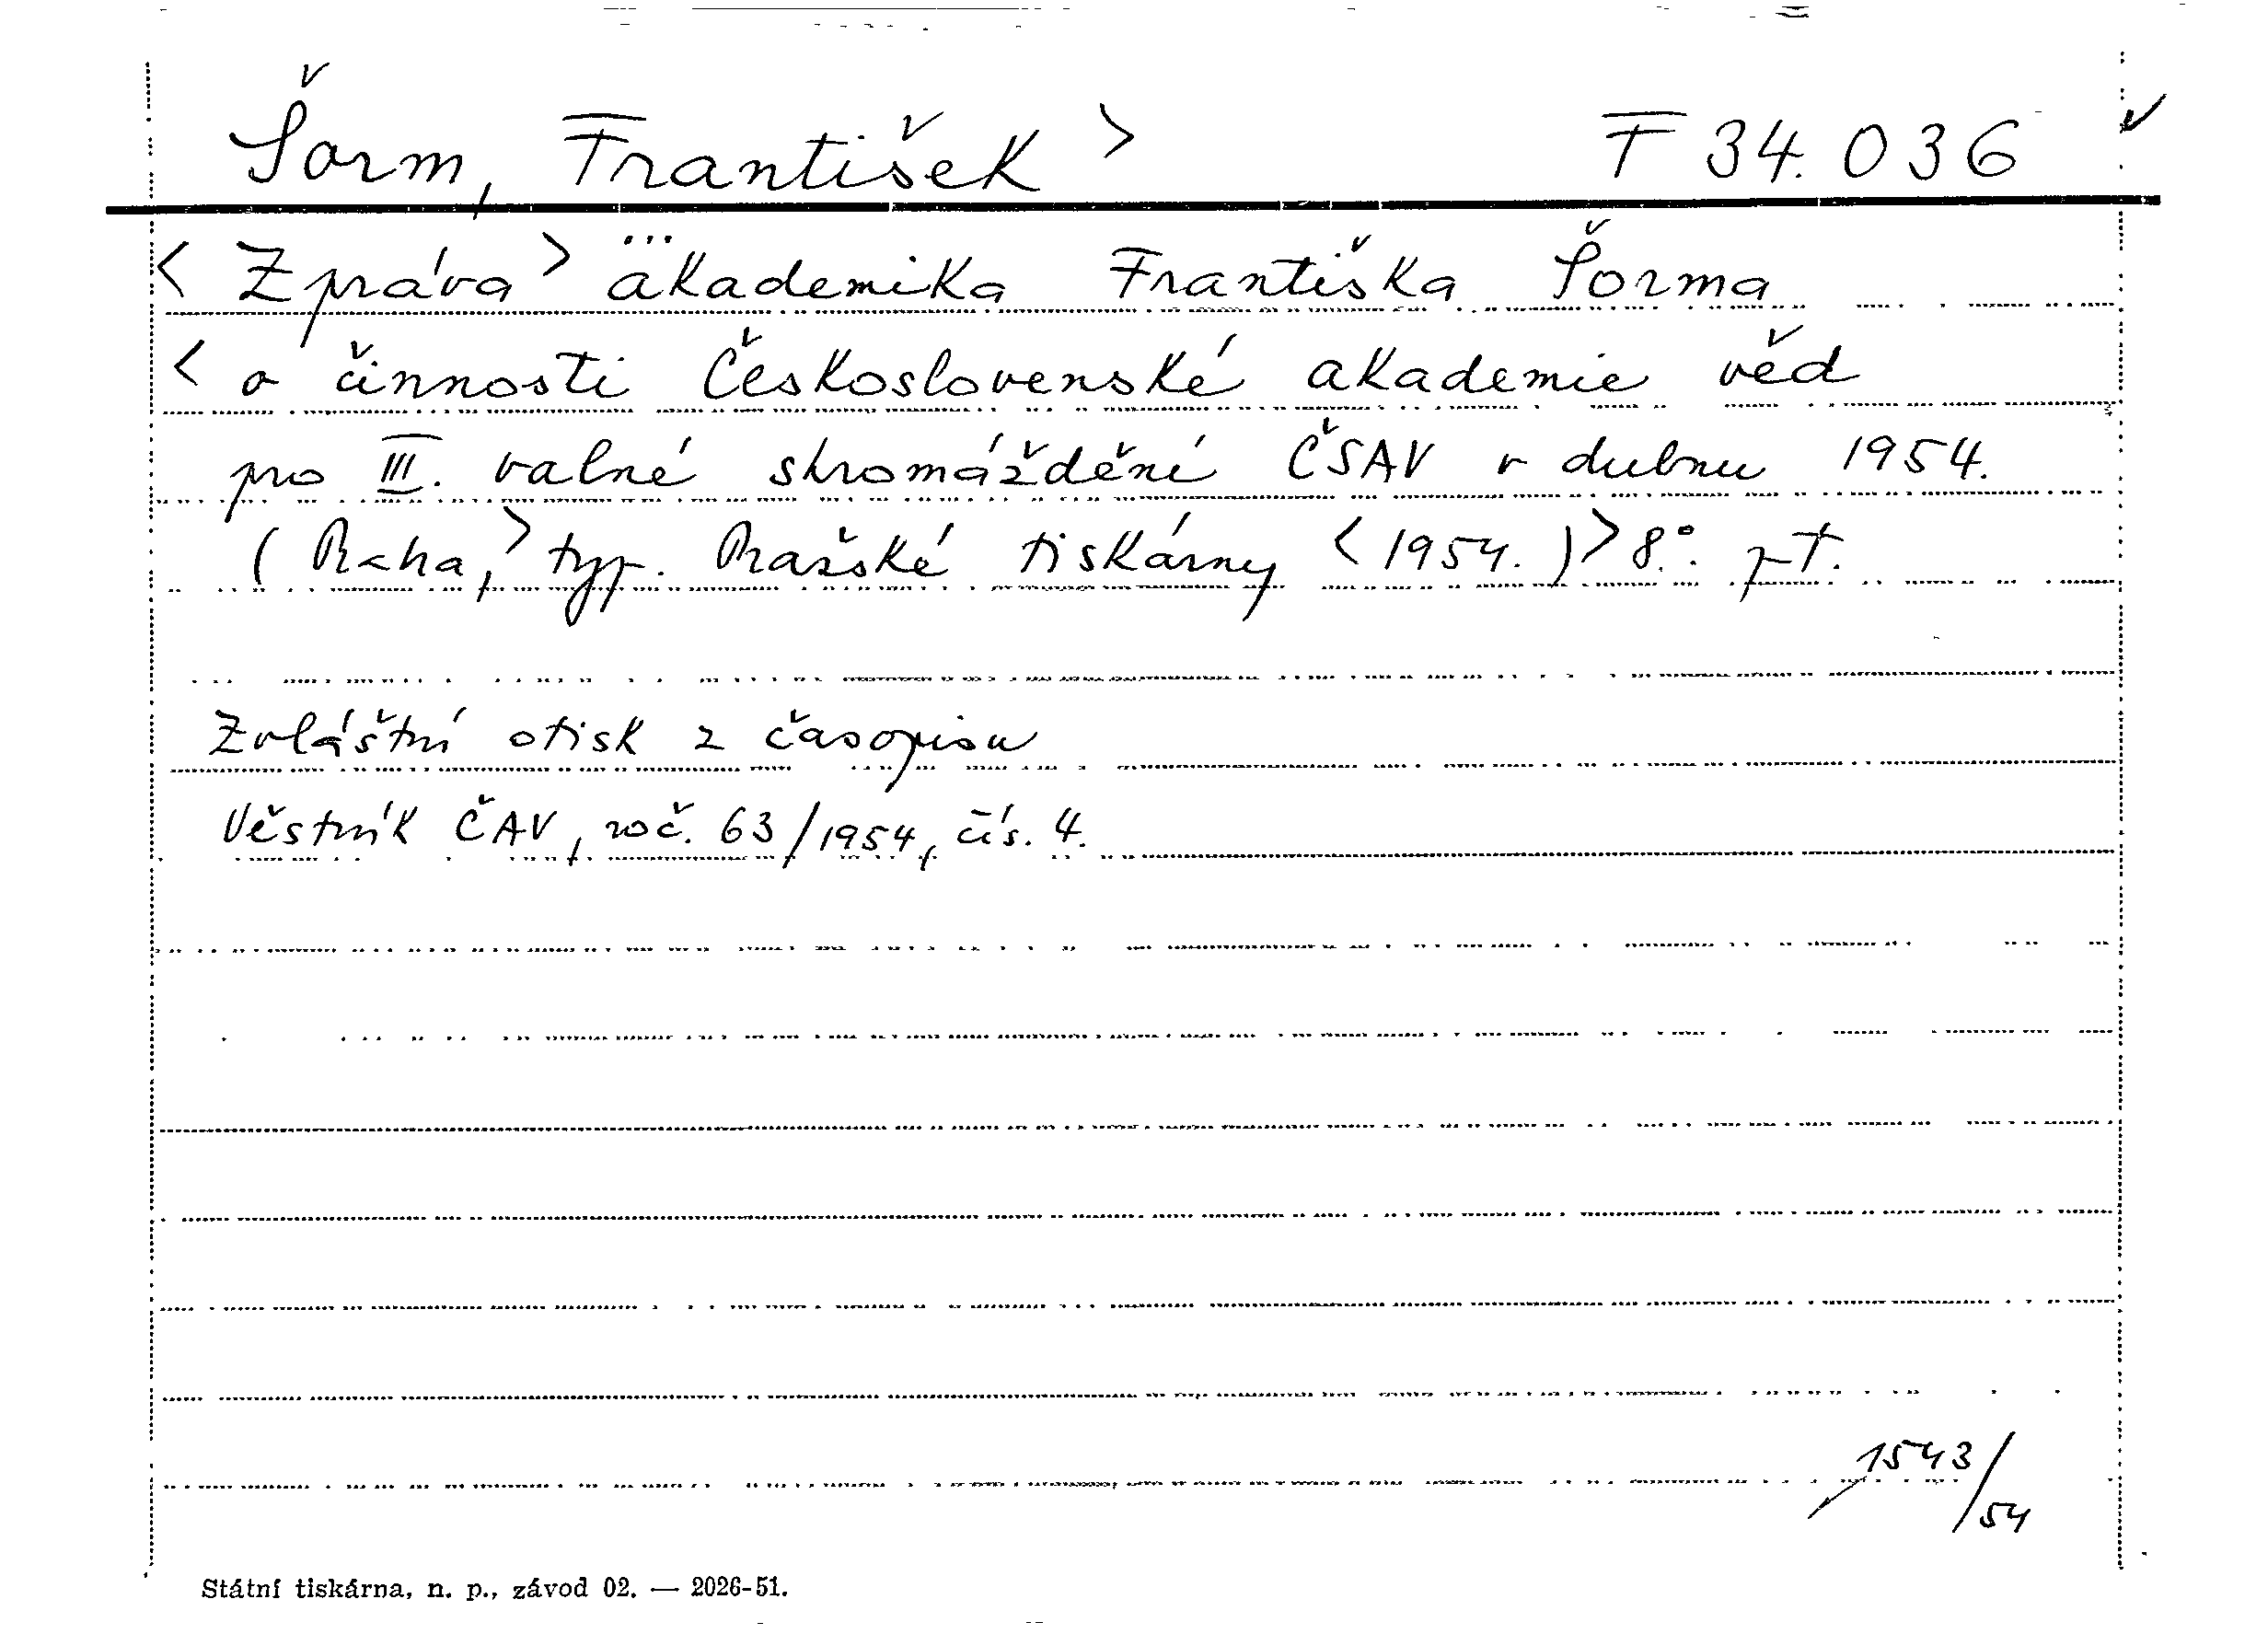 Šorm, František > F 34.036 ✓
< Zpráva > ... akademika Františka Šorma
< o činnosti Československé akademie věd
pro III. valné shromáždění ČSAV v dubnu 1954.
(Praha, > typ. Pražské tiskárny < 1954. ) > 8.° 
Zvláštní otisk z časopisu
Věstník ČAV, roč. 63/1954, čís. 4.
1543/54
Státní tiskárna, n. p., závod 02. — 2026-51.